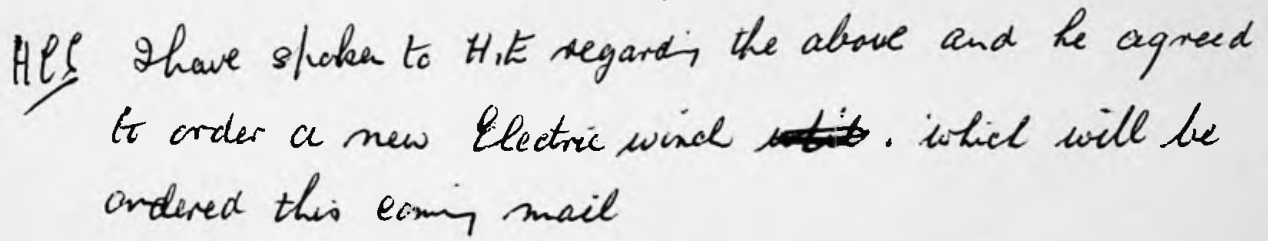 HCS I have spoken to H.E regarding the above and he agreed
to order a new Electric winch . which will be
ordered this coming mail